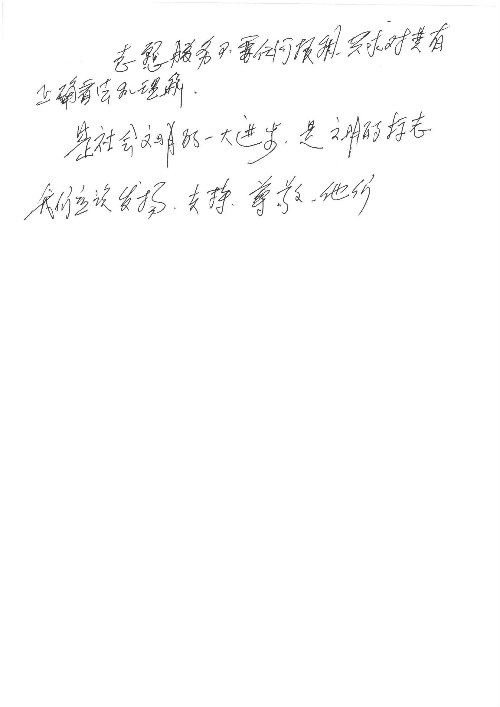 志愿服务不需任何报酬、只求对其有
正确看法和理解.
是社会文明的一大进步、是文明的标志
我们应该发扬、支持、尊敬、他们